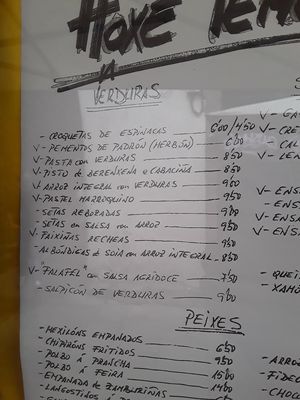 HOXE TEMOS
VERDURAS
- CROQUETAS DE ESPINACAS 6'00/4'50
V- PEMENTOS DE PADRÓN (HERBÓN) 6'00
V- PASTA con VERDURAS 8'50
V- PISTO de BERENXENA e CABACIÑA 8'50
V- ARROZ INTEGRAL con VERDURAS 9'00
V- PASTEL MARROQUINO 9'50
- SETAS REBOZADAS 9'00
- SETAS en SALSA con ARROZ 9'50
V- FAIXIÑAS RECHEAS 9'50
- ALBÓNDIGAS de SOIA con ARROZ INTEGRAL 8'50
V- "FALAFEL" con SALSA AGRIDOCE 7'50
- SALPICÓN DE VERDURAS 9'00
PEIXES
- MEXILÓNS EMPANADOS 6'50
- CHIPIRÓNS FRITIDOS 9'50
- POLBO Á PRANCHA
- POLBO Á FEIRA
- EMPANADA de ZAMBURIÑAS
- LANGOSTINOS
V-
V- CRE
V-
V- ENS
- ENSA
V- ENSA
V- ENSA
- QUEI
- XAMÓ
- ARRO
- FIDE
- CHOC